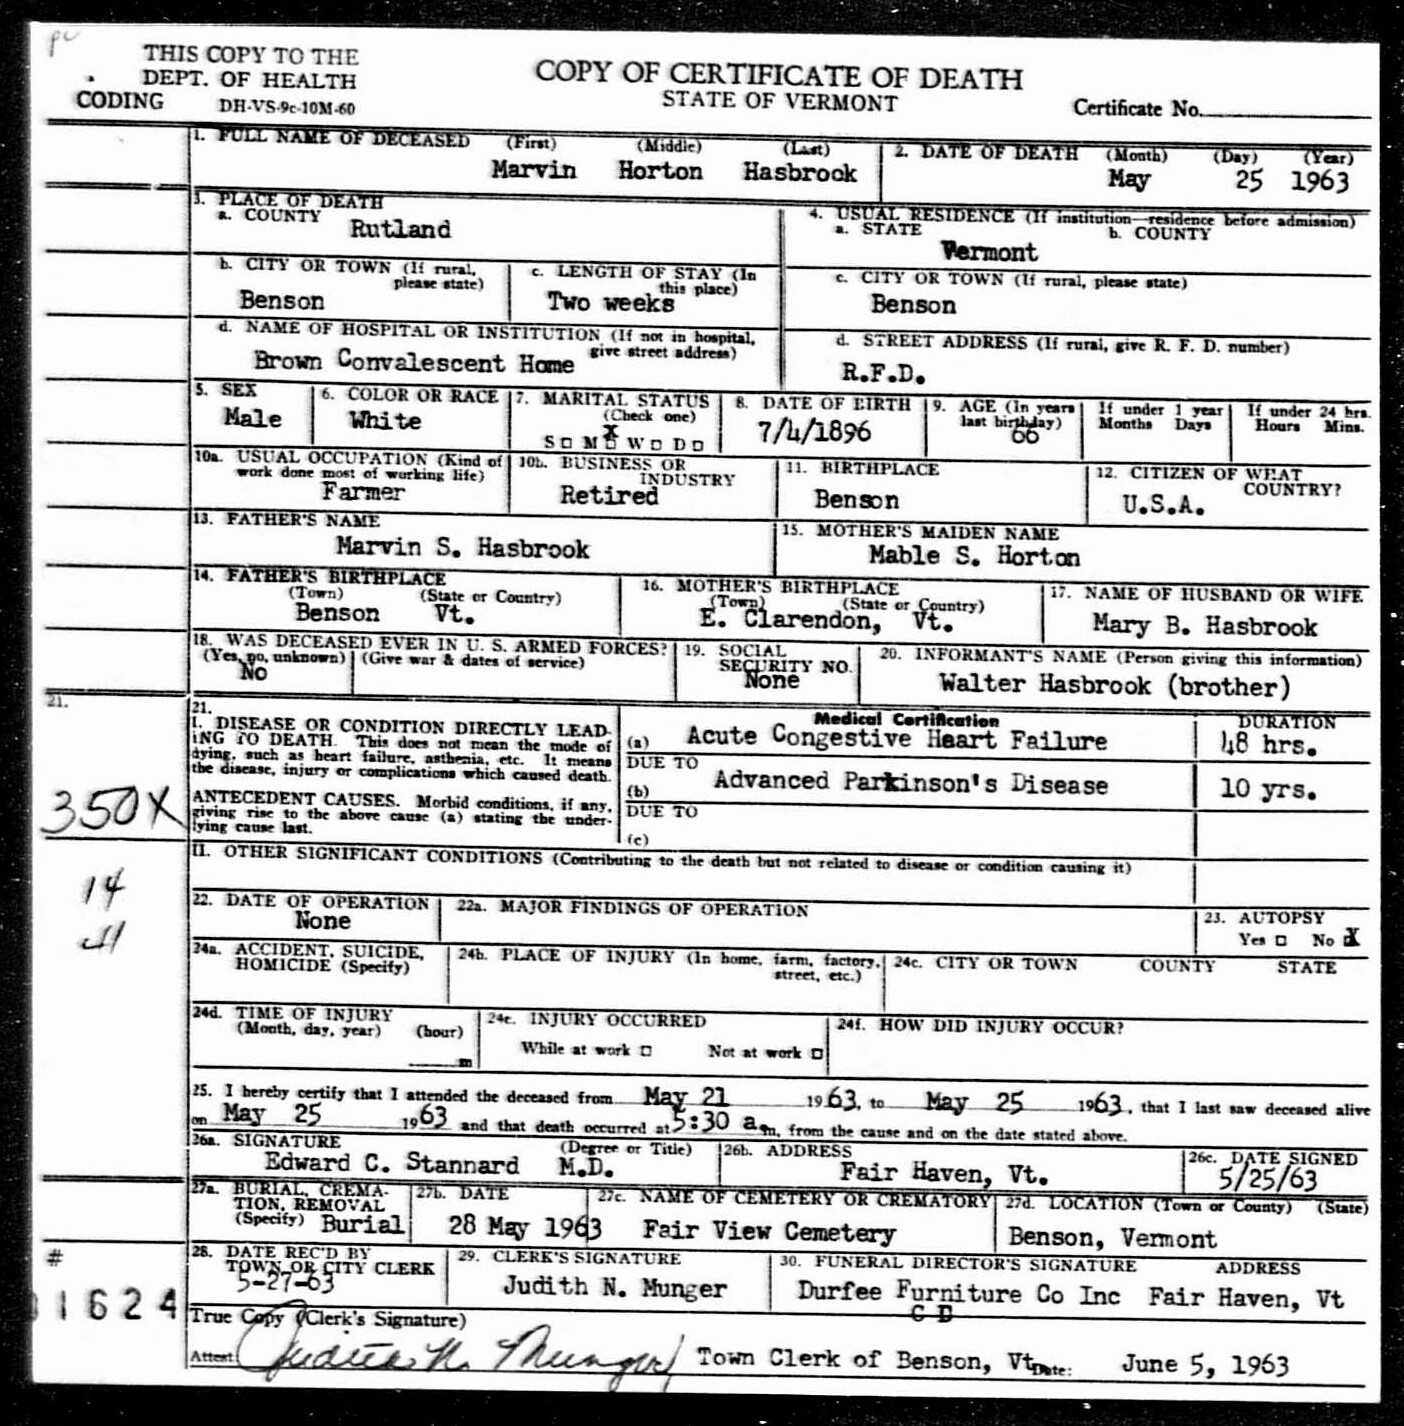 THIS COPY TO THE
DEPT. OF HEALTH
CODING DH-VS-9c-10M-60
COPY OF CERTIFICATE OF DEATH
STATE OF VERMONT
Certificate No.
1. FULL NAME OF DECEASED (First) (Middle) (Last)
Marvin Horton Hasbrook
2. DATE OF DEATH (Month) (Day) (Year)
May 25 1963
3. PLACE OF DEATH
a. COUNTY Rutland
4. USUAL RESIDENCE (If institution—residence before admission)
a. STATE b. COUNTY
Vermont
b. CITY OR TOWN (If rural, please state)
Benson
c. LENGTH OF STAY (In this place)
Two weeks
c. CITY OR TOWN (If rural, please state)
Benson
d. NAME OF HOSPITAL OR INSTITUTION (If not in hospital, give street address)
Brown Convalescent Home
d. STREET ADDRESS (If rural, give R. F. D. number)
R.F.D.
5. SEX
Male
6. COLOR OR RACE
White
7. MARITAL STATUS
(Check one)
X
S □ M □ W □ D □
8. DATE OF BIRTH
7/4/1896
9. AGE (In years last birthday)
66
If under 1 year
Months Days
If under 24 hrs.
Hours Mins.
10a. USUAL OCCUPATION (Kind of work done most of working life)
Farmer
10b. BUSINESS OR INDUSTRY
Retired
11. BIRTHPLACE
Benson
12. CITIZEN OF WHAT COUNTRY?
U.S.A.
13. FATHER'S NAME
Marvin S. Hasbrook
15. MOTHER'S MAIDEN NAME
Mable S. Horton
14. FATHER'S BIRTHPLACE
(Town) (State or Country)
Benson Vt.
16. MOTHER'S BIRTHPLACE
(Town) (State or Country)
E. Clarendon, Vt.
17. NAME OF HUSBAND OR WIFE
Mary B. Hasbrook
18. WAS DECEASED EVER IN U. S. ARMED FORCES?
(Yes, no, unknown) (Give war & dates of service)
No
19. SOCIAL SECURITY NO.
None
20. INFORMANT'S NAME (Person giving this information)
Walter Hasbrook (brother)
21.
21.
I. DISEASE OR CONDITION DIRECTLY LEAD-
ING TO DEATH. This does not mean the mode of
dying, such as heart failure, asthenia, etc. It means
the disease, injury or complications which caused death.
ANTECEDENT CAUSES. Morbid conditions, if any,
giving rise to the above cause (a) stating the under-
lying cause last.
Medical Certification
DURATION
(a) Acute Congestive Heart Failure 48 hrs.
DUE TO
(b) Advanced Parkinson's Disease 10 yrs.
DUE TO
(c)
350X
II. OTHER SIGNIFICANT CONDITIONS (Contributing to the death but not related to disease or condition causing it)
14
22. DATE OF OPERATION
None
22a. MAJOR FINDINGS OF OPERATION
23. AUTOPSY
Yes □ No X
24a. ACCIDENT, SUICIDE, HOMICIDE (Specify)
24b. PLACE OF INJURY (In home, farm, factory, street, etc.)
24c. CITY OR TOWN COUNTY STATE
24d. TIME OF INJURY
(Month, day, year) (hour)
m
24e. INJURY OCCURRED
While at work □ Not at work □
24f. HOW DID INJURY OCCUR?
25. I hereby certify that I attended the deceased from May 21 1963, to May 25 1963, that I last saw deceased alive
on May 25 1963 and that death occurred at 5:30 a.m, from the cause and on the date stated above.
26a. SIGNATURE (Degree or Title)
Edward C. Stannard M.D.
26b. ADDRESS
Fair Haven, Vt.
26c. DATE SIGNED
5/25/63
27a. BURIAL, CREMA-
TION, REMOVAL
(Specify) Burial
27b. DATE
28 May 1963
27c. NAME OF CEMETERY OR CREMATORY
Fair View Cemetery
27d. LOCATION (Town or County) (State)
Benson, Vermont
#
28. DATE REC'D BY
TOWN OR CITY CLERK
5-27-63
29. CLERK'S SIGNATURE
Judith N. Munger
30. FUNERAL DIRECTOR'S SIGNATURE ADDRESS
Durfee Furniture Co Inc Fair Haven, Vt
C D
1624
True Copy (Clerk's Signature)
Attest: Judith N. Munger Town Clerk of Benson, Vt. Date: June 5, 1963